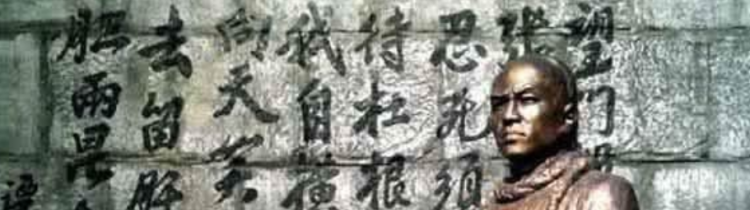 望門
張
忍死須
待杜根
我自橫
向天笑
去留肝
胆兩昆
譚